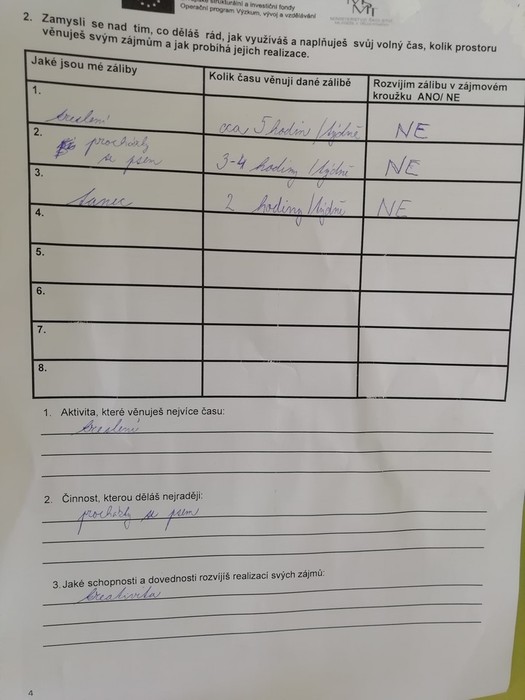 strukturální a investiční fondy
Operační program Výzkum, vývoj a vzdělávání
2. Zamysli se nad tím, co děláš rád, jak využíváš a naplňuješ svůj volný čas, kolik prostoru
věnuješ svým zájmům a jak probíhá jejich realizace.
Jaké jsou mé záliby
Kolik času věnuji dané zálibě
Rozvíjím zálibu v zájmovém
kroužku ANO/ NE
1.
kreslení
cca 5 hodin/týdně
NE
2.
procházky
se psem
3-4 hodiny/týdně
NE
3.
tanec
2 hodiny/týdně
NE
4.
5.
6.
7.
8.
1. Aktivita, které věnuješ nejvíce času:
kreslení
2. Činnost, kterou děláš nejraději:
procházky se psem
3. Jaké schopnosti a dovednosti rozvíjíš realizací svých zájmů:
kreativita
4